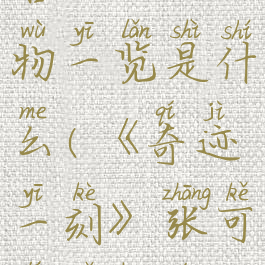 wù yī lǎn shì shí
物一览是什
me qí jì
么(《奇迹
yī kè zhāng kě
一刻》张可